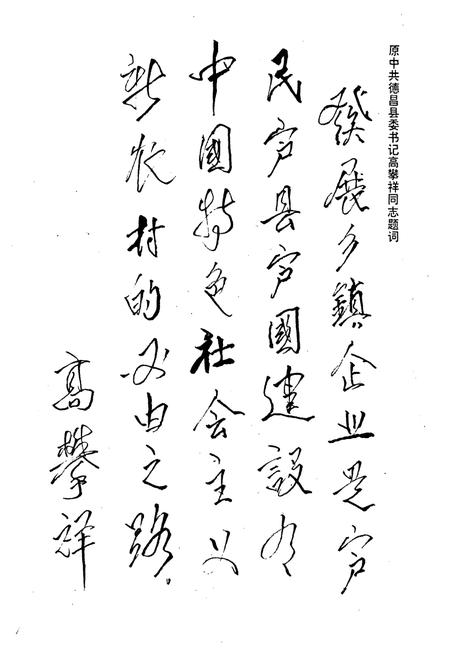 原中共德昌县委书记高攀祥同志题词
發展乡鎮企业是富
民富县富國建設有
中國特色社会主义
新农村的必由之路。
高攀祥